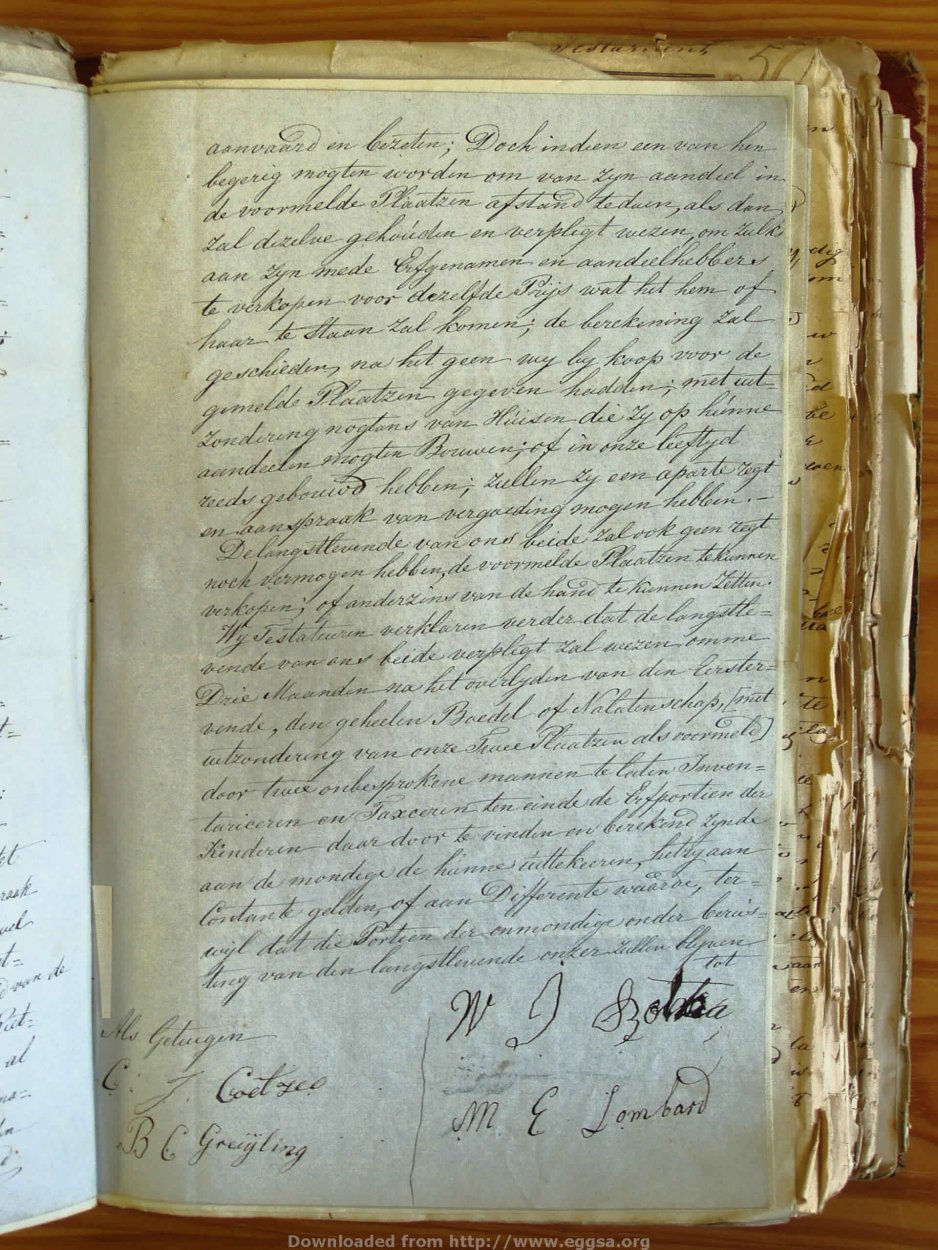 Testament
50
aanvaard en bezeten; Doch indien een van hen
begerig mogten worden om van zyn aandeel in
de voormelde Plaatzen afstand te doen, als dan
zal dezelve gehouden en verpligt wezen, om zulks
aan zyn mede Erfgenamen en aandeelhebbers
te verkopen voor dezelfde Prijs wat het hem of
haar te Staan zal komen; de berekening zal
geschieden, na het geen wy by koop voor de
gemelde Plaatzen gegeven hadden; met uit-
zondering nogtans van Huisen die zy op hunne
aandeelen mogten Bouwen; of in onze leeftyd
reeds gebouwd hebben; zullen zy een aparte regt
en aanspraak van vergoeding mogen hebben.-
De langstlevende van ons beide zal ook geen regt
noch vermogen hebben, de voormelde Plaatzen te kunnen
verkopen; of anderzins van de hand te kunnen zetten.
Wy Testateuren verklaren verder dat de langstle=
vende van ons beide verpligt zal wezen omme
Drie Maanden na het overlyden van den Eerster=
vende, den geheelen Boedel of Nalatenschap, [met
uitzondering van onze Twee Plaatzen als voormeld]
door twee onbesprokene mannen te laten Inven=
tariceren en Taxceren ten einde de Erfportien der
Kinderen daar door te vinden en berekend zynde
aan de mondige de hunne uittekeeren, het zy aan
Contante gelden, of aan Differente waarde, ter=
wyl dat die Portien der onmondige onder berus=
ting van den langstlevende onzer zullen blyven
tot
W J Botha
Als Getuigen
C. J. Coetzee
M E Lombard
B C Greijling
Downloaded from http://www.eggsa.org